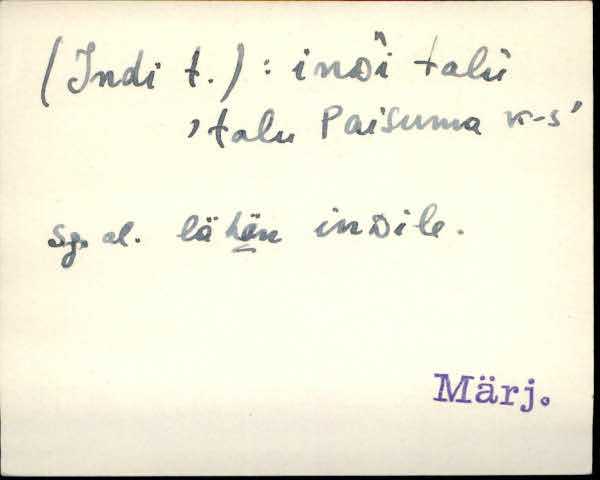 (Indi t.) : inᴅi talu
, talu Paisuma k-s'
Sg. al. lähän inᴅile.
Märj.